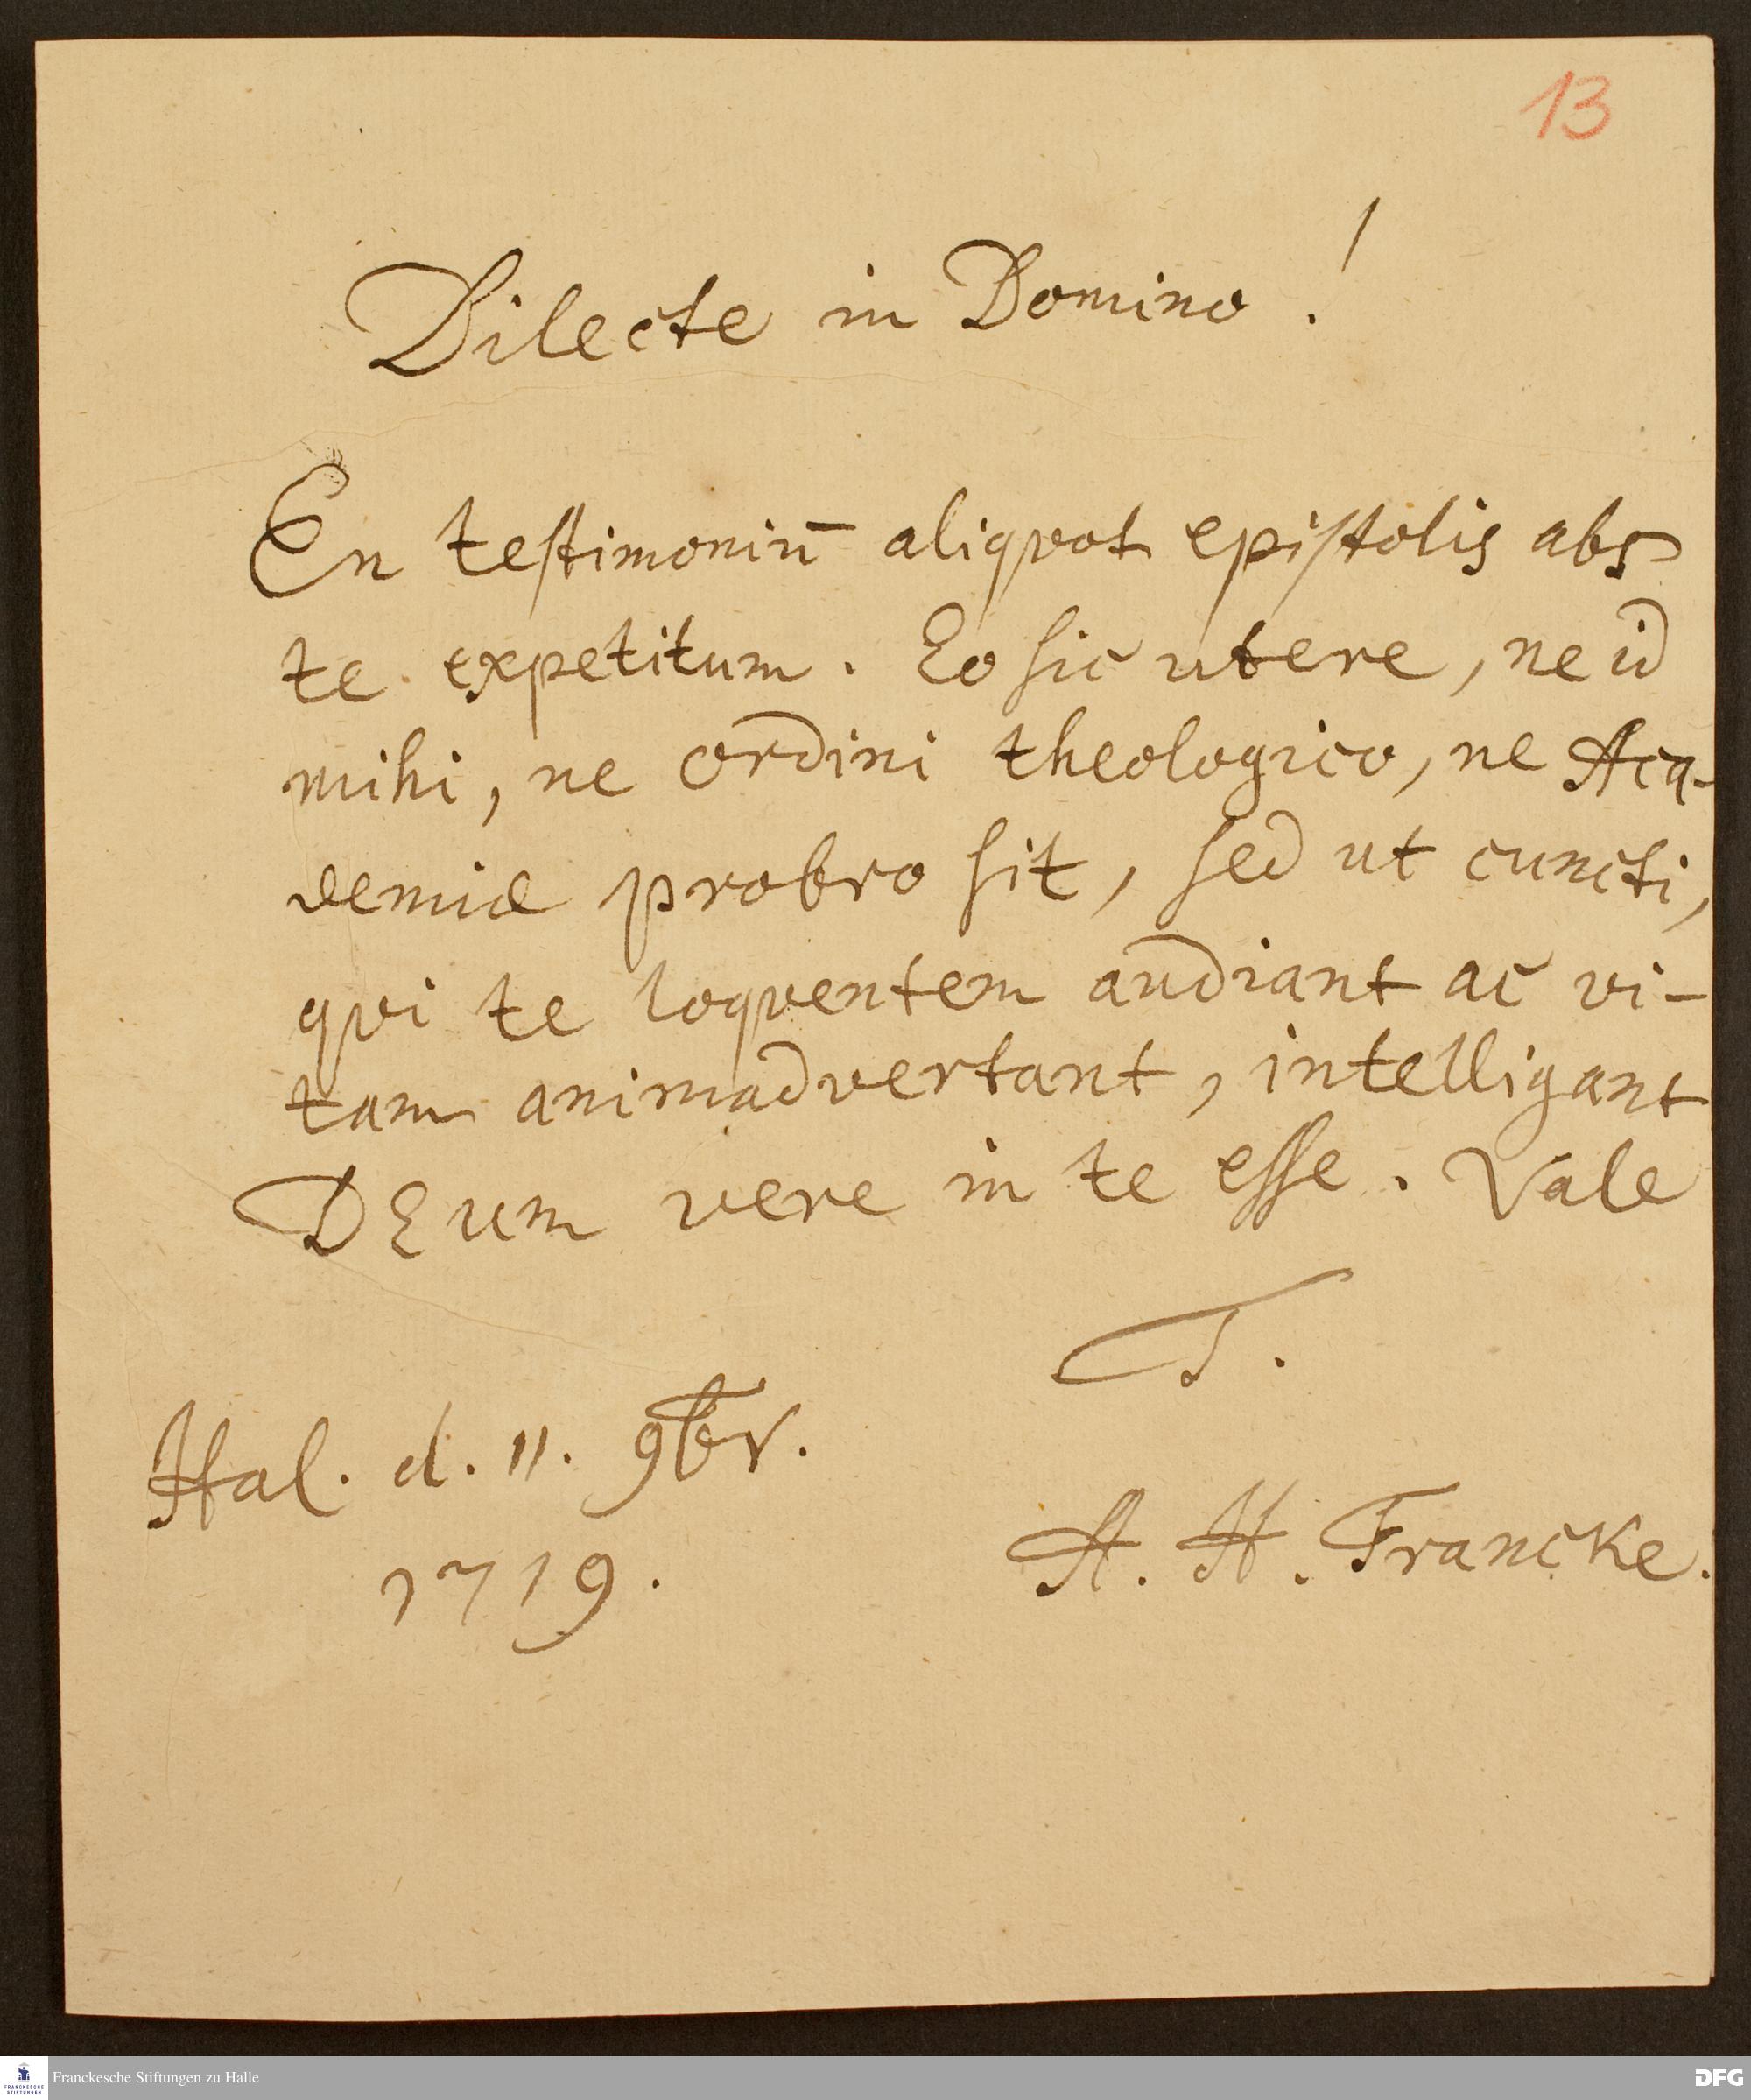 13
Dilecte in Domino!
En testimoniū aliqvot epistolis abs
te expetitum. Eo sic utere, ne id
mihi, ne ordini theologico, ne Aca-
demiæ probro sit, sed ut cuncti,
qvi te loqventem audiant ac vi-
tam animadvertant, intelligant
DEum vere in te esse. Vale
T.
Hal. d. 11. 9br.
1719.
A. H. Francke.
FRANCKESCHE
STIFTUNGEN
Franckesche Stiftungen zu Halle
DFG